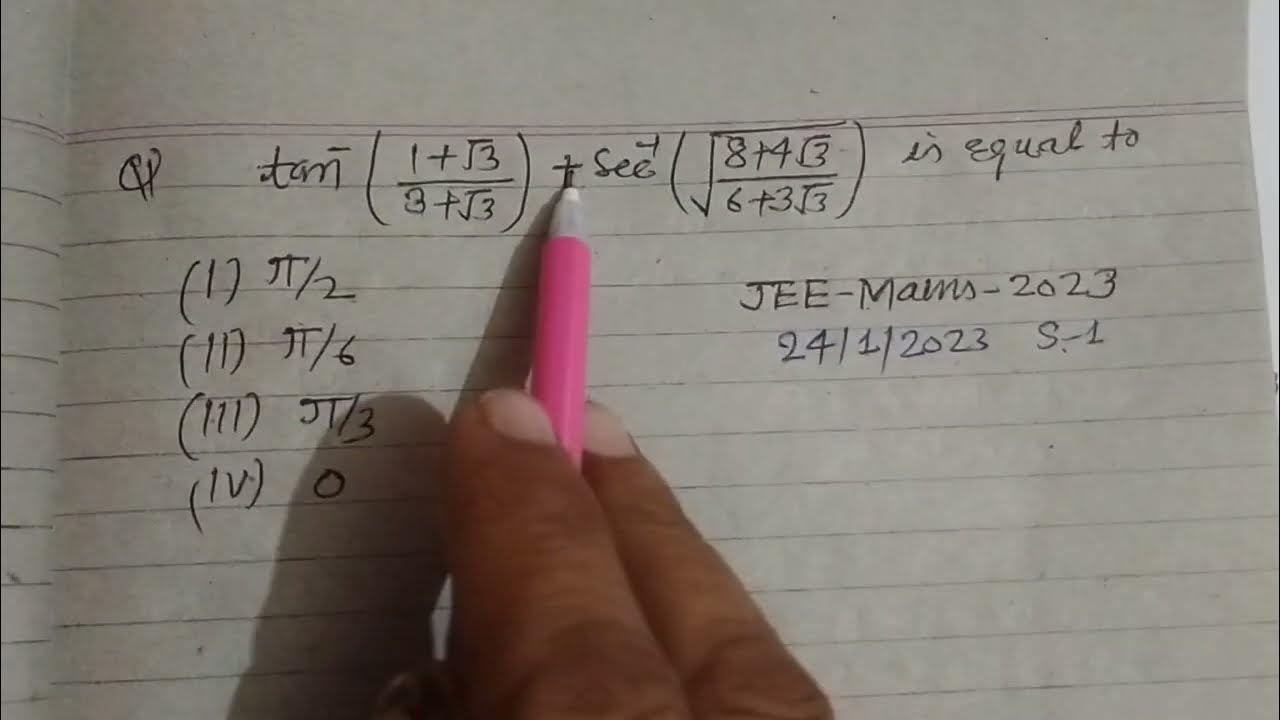 Q tan⁻ (1+√3 / 3+√3) + Sec⁻¹ (√(8+4√3 / 6+3√3)) is equal to
(I) π/2
(II) π/6
(III) π/3
(IV) 0
JEE-Mains-2023
24/1/2023 S-1